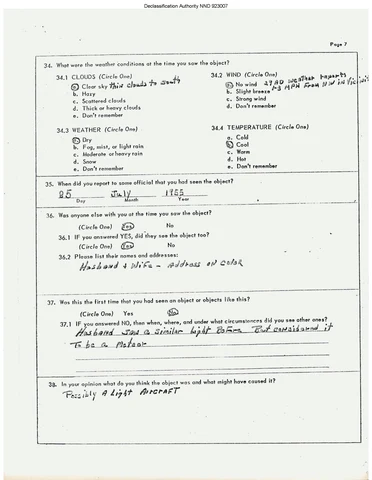 Declassification Authority NND 923007
Page 7
34. What were the weather conditions at the time you saw the object?
34.1 CLOUDS (Circle One)
a. Clear sky Thin clouds to south
b. Hazy
c. Scattered clouds
d. Thick or heavy clouds
e. Don't remember
34.2 WIND (Circle One)
a. No wind weather reports
b. Slight breeze MPH From NW in
c. Strong wind
d. Don't remember
34.3 WEATHER (Circle One)
a. Dry
b. Fog, mist, or light rain
c. Moderate or heavy rain
d. Snow
e. Don't remember
34.4 TEMPERATURE (Circle One)
a. Cold
b. Cool
c. Warm
d. Hot
e. Don't remember
35. When did you report to some official that you had seen the object?
25 July 1955
Day Month Year
36. Was anyone else with you at the time you saw the object?
(Circle One) Yes No
36.1 IF you answered YES, did they see the object too?
(Circle One) Yes No
36.2 Please list their names and addresses:
Husband & Wife - Address on
37. Was this the first time that you had seen an object or objects like this?
(Circle One) Yes No
37.1 IF you answered NO, then when, where, and under what circumstances did you see other ones?
Husband saw a similar Light Before But considered it
To be a Meteor
38. In your opinion what do you think the object was and what might have caused it?
Possibly A Light Aircraft